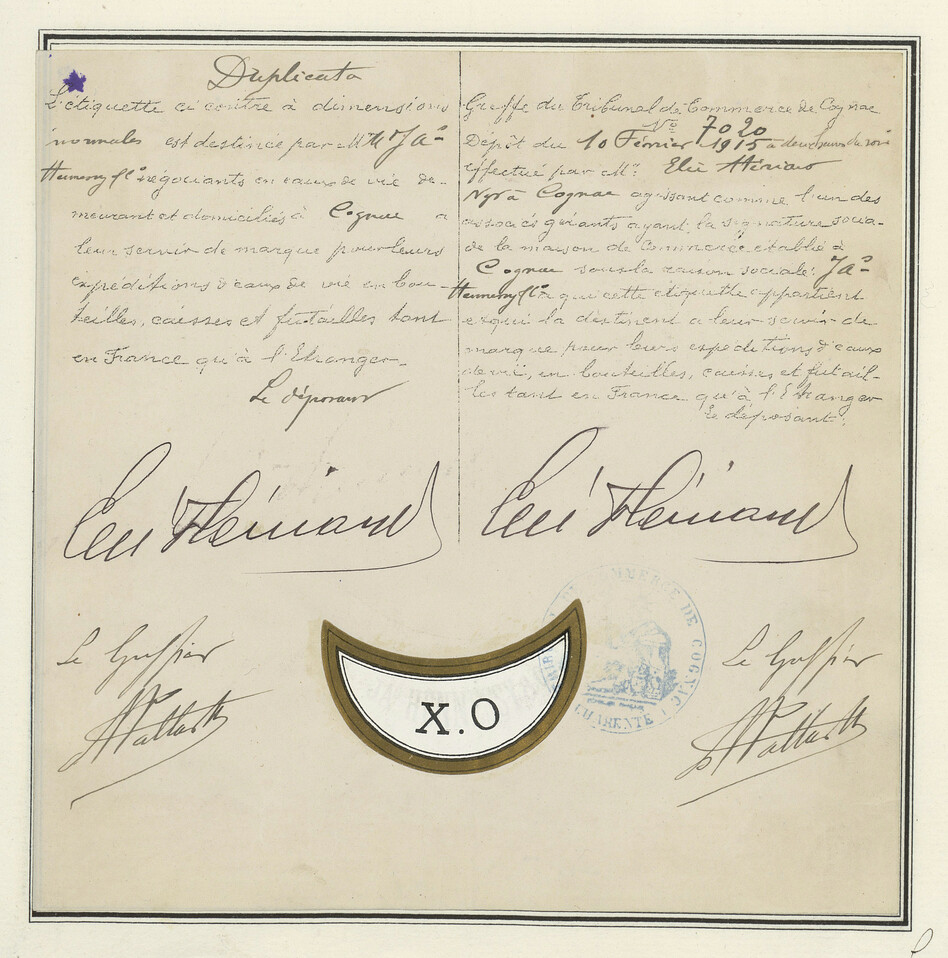 Duplicata
L'étiquette ci contre à dimensions
normales est destinée par MM Jas
Hennessy & Co négociants en eaux de vie de-
meurant et domiciliés à Cognac a
leur servir de marque pour leurs
expéditions d'eaux de vie en bou-
teilles, caisses et futailles tant
en France qu'à l'Etranger
Le déposant
Greffe du Tribunal de Commerce de Cognac
No 7020
Dépôt du 10 Février 1915 a deux heures du soir
effectué par Mr. Elie Hériard
Nyrà Cognac agissant comme l'un des
associés gérants ayant la signature socia-
de la maison de Commerce établie à
Cognac sous la raison sociale: Jas
Hennessy & Co a qui cette étiquette appartient
et qui la destinent a leur servir de
marque pour leurs expéditions d'eaux
de vie, en bouteilles, caisses et futail-
les tant en France qu'à l'Etranger
Le déposant:
Elie Hériard
Elie Hériard
Le Greffier
Le Greffier
X.O
COMMERCE DE COGNAC
CHARENTE